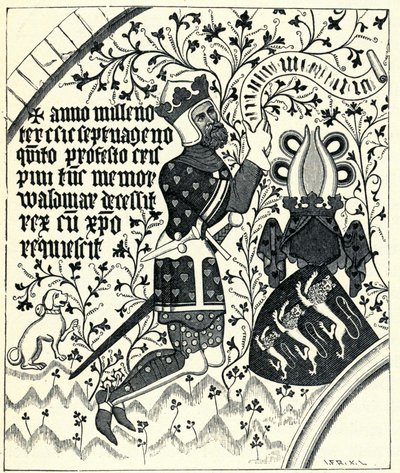 ✠ anno milleno
ter c sic septuageno
qūito profesto cris
pini tūc memor e
waldmar decessit
rex cū xp̄o
requiescit